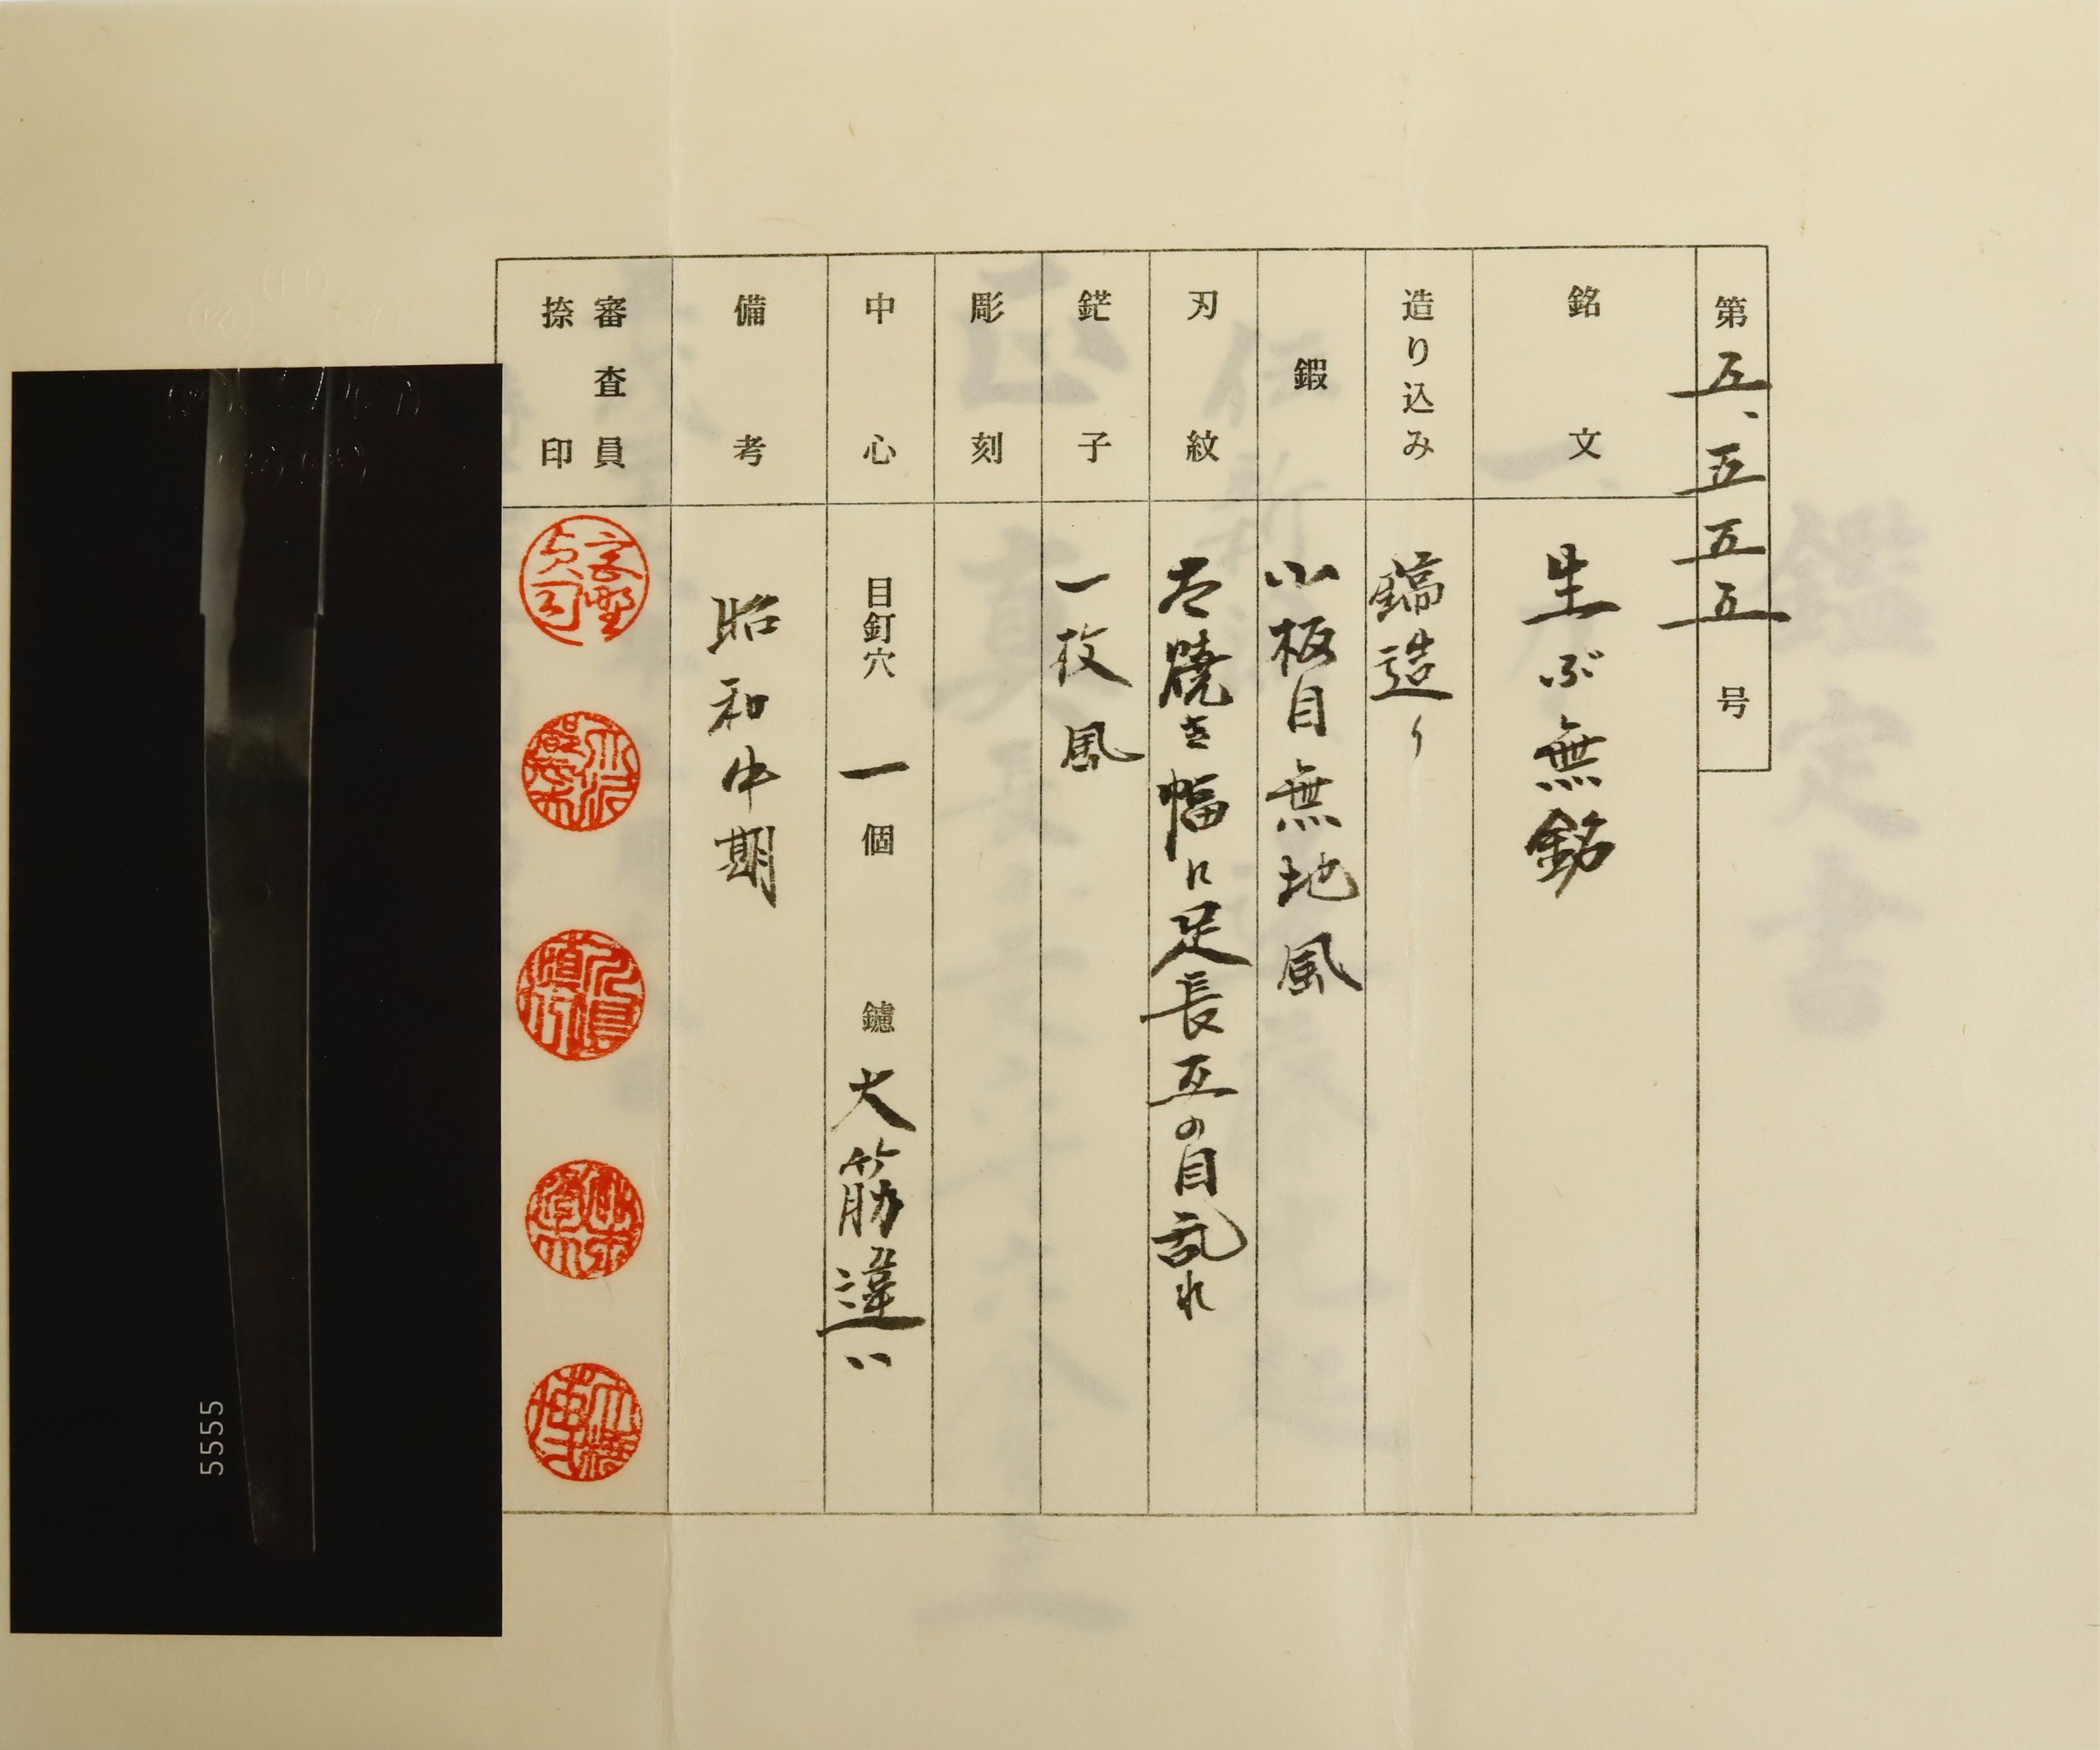 第五、五五五号
銘文
生ぶ無銘
造り込み
鎬造り
鍛
小板目無地風
刃紋
広焼き幅に足長互の目乱れ
鋩子
一枚風
彫刻
中心
目釘穴 一個 鑢 大筋違い
備考
昭和中期
審査員
捺印
5555